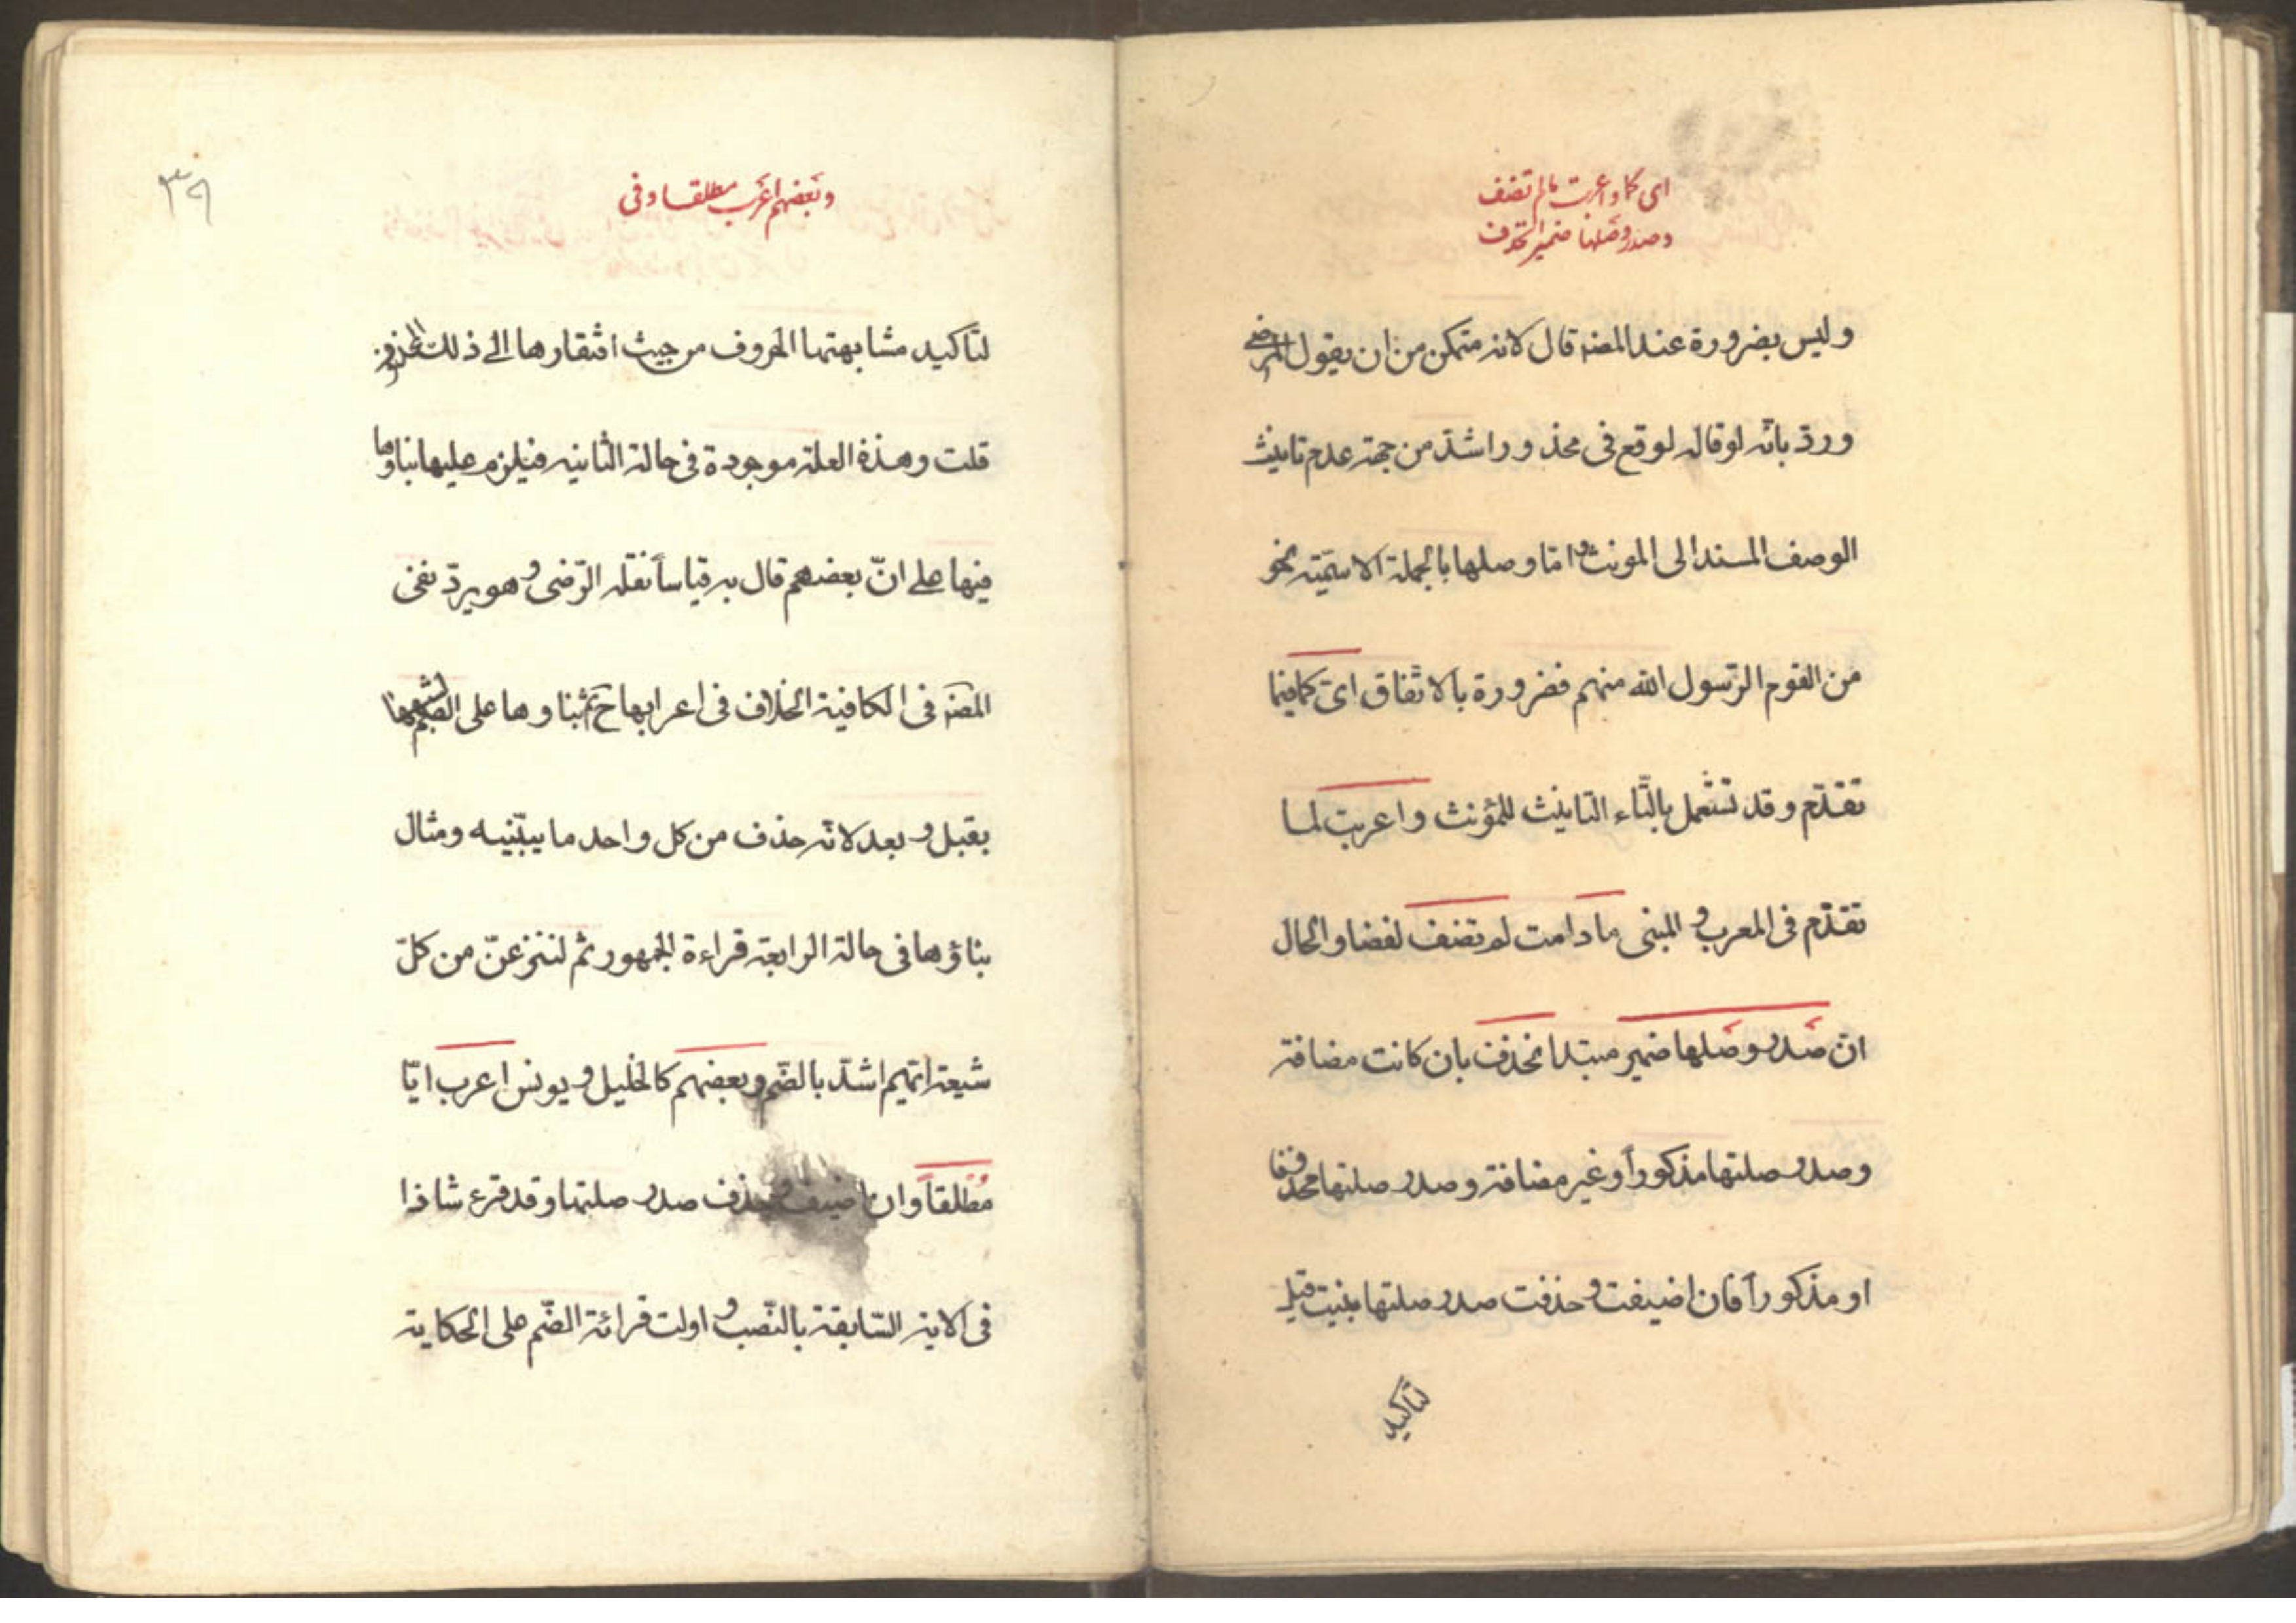 اى كما واعربت مالم تضف
وصدر وصلها ضمير انحذف
وليس بضرورة عند المصنه قال لانه متمكن من ان يقول المرضى
وردّ بانّه لو قاله لوقع فى محذور اشدّ من جهة عدم تانيث
الوصف المسند الى المونث وامّا وصلها بالجملة الاسميّته نحو
من القوم الرّسول الله منهم فضرورة بالاتفاق اىّ كما فيما
تقدّم وقد تستعمل بالتّاء التانيث للمؤنث واعربت لما
تقدّم فى المعرب و المبنى ما دامت لم تضف لفضا والحال
ان صدر وصلها ضمير مبتدا نحذف بان كانت مضافة
وصدر صلتها مذكوراً وغير مضافة وصدر صلتها محذوفا
او مذكوراً فان اضيفت وحذفت صدر صلتها بنيت قيل
لتاكيد
٣٩
وبعضهم اعرب مطلقا وفى
لتاكيد مشابهتها الحروف من حيث افتقارها الى ذلك المحذوف
قلت وهذة العلة موجودة فى حالة الثانيه فيلزم عليها بناؤها
فيها على انّ بعضهم قال به قياساً نقله الرّضى وهو يردّ نفى
المصنه فى الكافية الخلاف فى اعرابها ح ثم بناوها على الضم لشبهها
بقبل وبعد لانّه حذف من كل واحد ما يبيّنيه ومثال
بناؤها فى حالة الرابعة قراءة الجمهور ثم لننزعنّ من كلّ
شيعة ايّهم اشدّ بالضّم وبعضهم كالخليل و يونس اعرب ايّا
مطلقاً وان اضيف وحذف صدر صلتها وقد قرء شاذا
فى الاية السّابقة بالنّصب و اولت قرائة الضّم على الحكاية